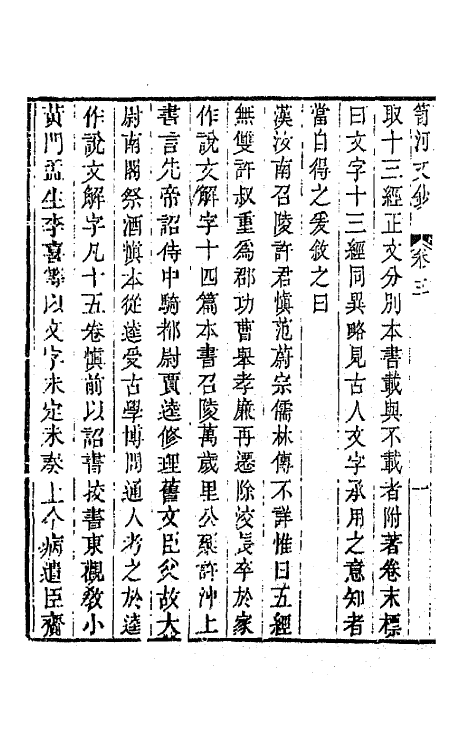 笥河文鈔 卷三 一
取十三經正文分別本書載與不載者附著卷末標
曰文字十三經同異略見古人文字承用之意知者
當自得之爰敘之曰
漢汝南召陵許君愼范蔚宗儒林傳不詳惟曰五經
無雙許叔重爲郡功曹舉孝廉再遷除洨長卒於家
作說文解字十四篇本書召陵萬歲里公乘許沖上
書言先帝詔侍中騎都尉賈逵修理舊文臣父故太
尉南閣祭酒愼本從逵受古學博問通人考之於逵
作說文解字凡十五卷愼前以詔書挍書東觀敎小
黃門孟生李喜等以文字未定未奏上今病遣臣齎